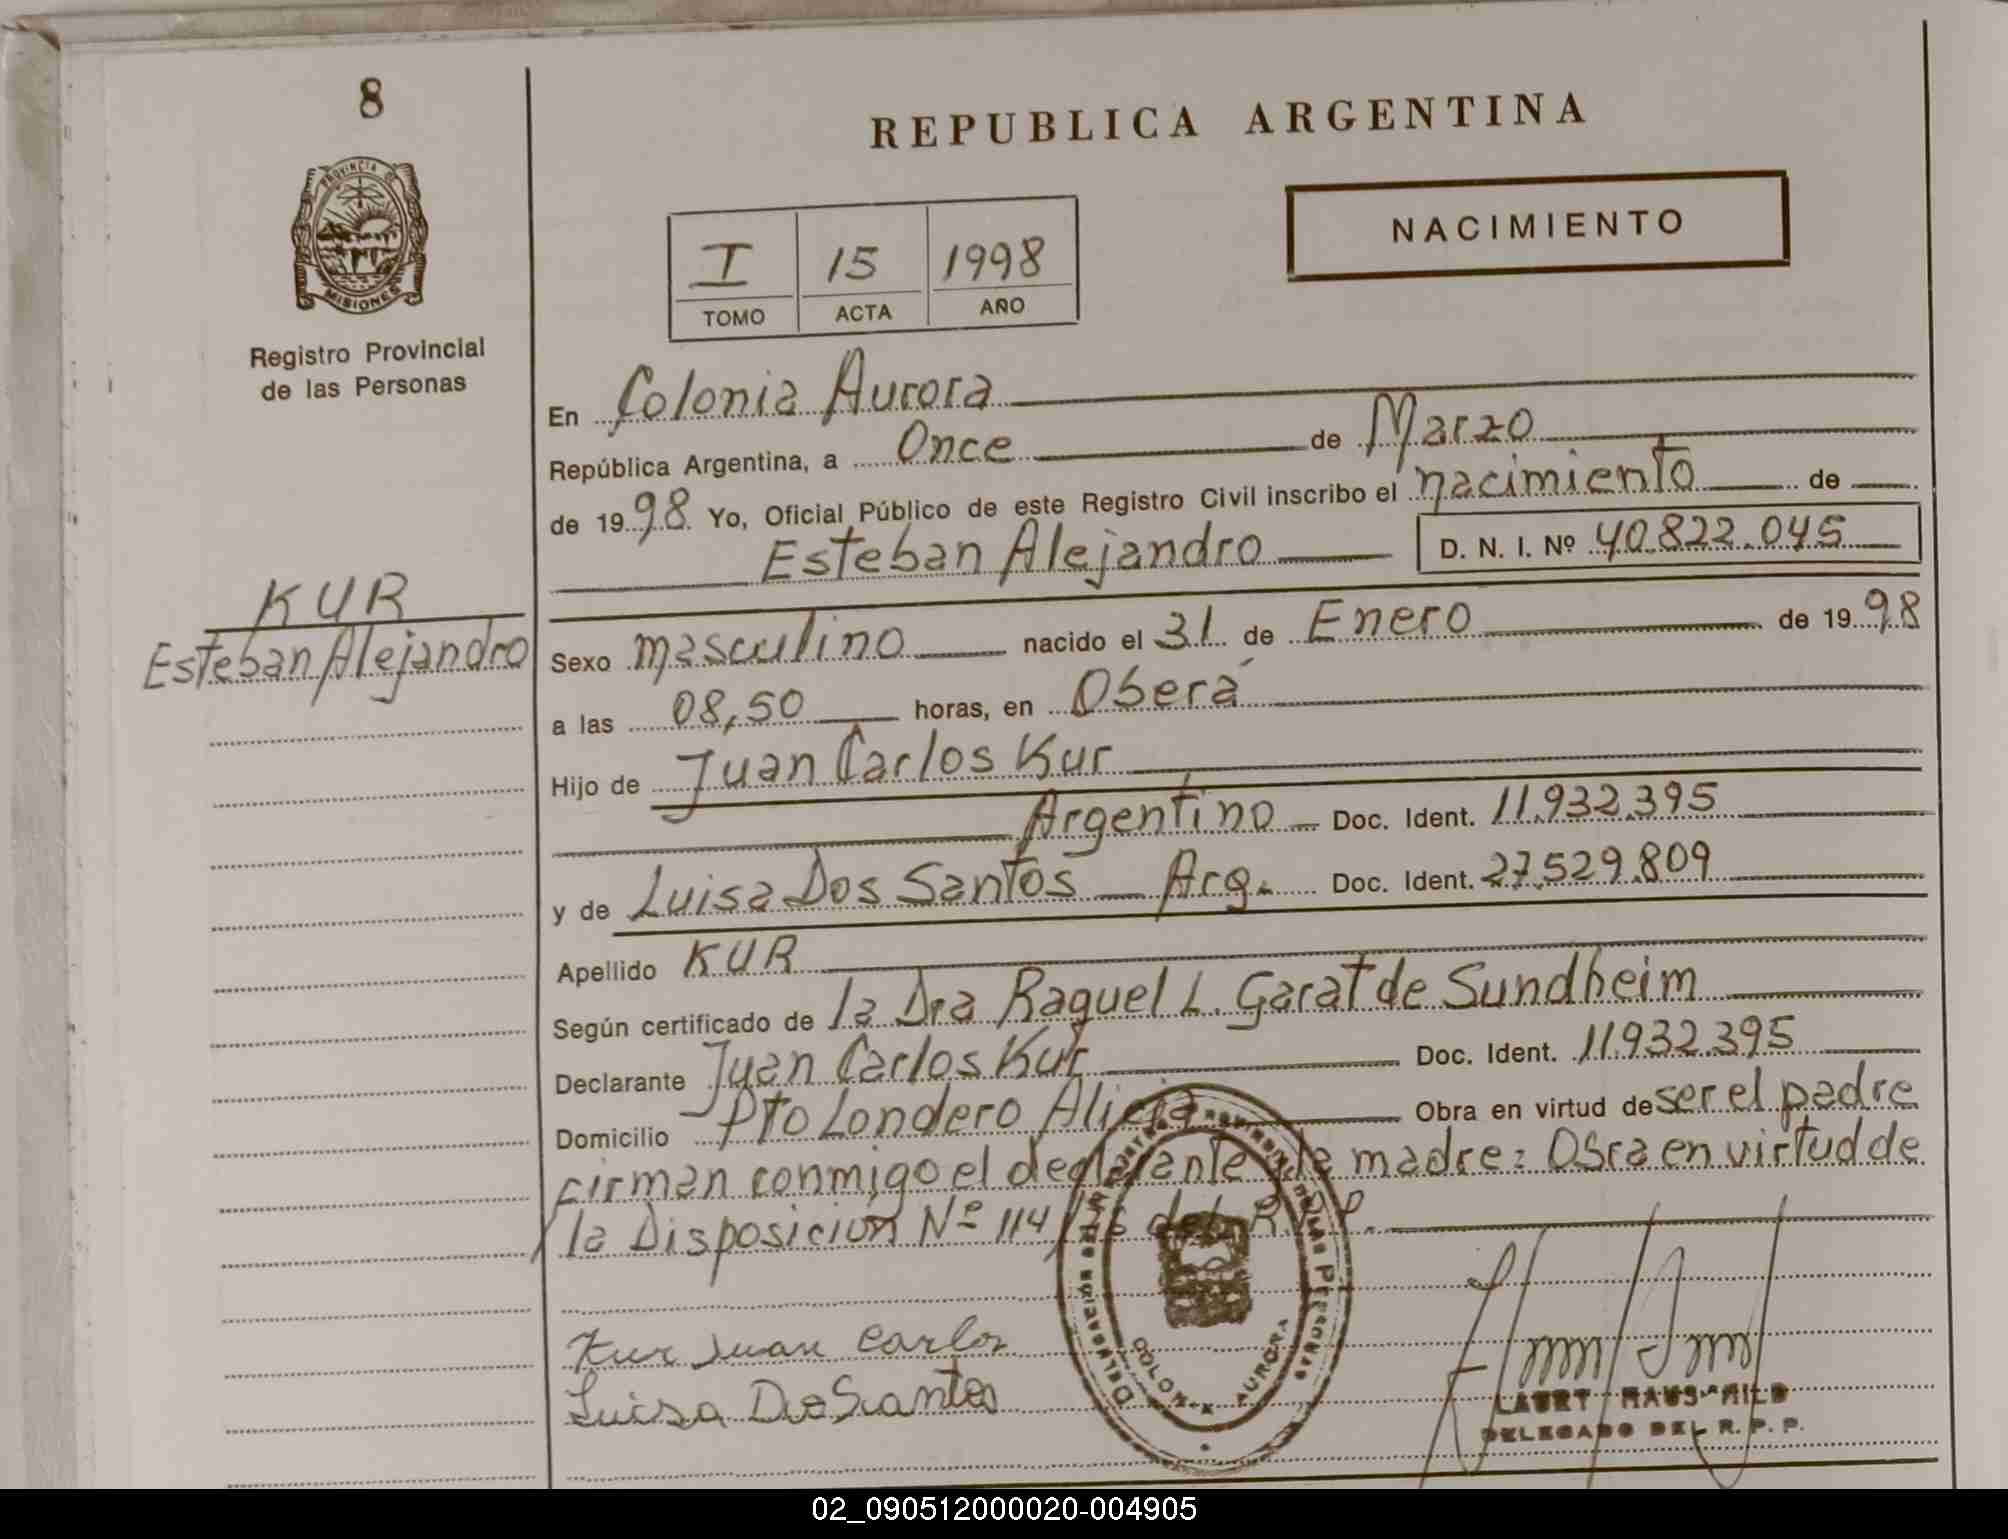 8
PROVINCIA DE
MISIONES
Registro Provincial
de las Personas
KUR
Esteban Alejandro
REPUBLICA ARGENTINA
NACIMIENTO
I 15 1998
TOMO ACTA AÑO
En Colonia Aurora
República Argentina, a Once de Marzo
de 1998 Yo, Oficial Público de este Registro Civil inscribo el nacimiento de
Esteban Alejandro D. N. I. Nº 40.822.045
Sexo masculino nacido el 31 de Enero de 1998
a las 08,50 horas, en Oberá
Hijo de Juan Carlos Kur
Argentino Doc. Ident. 11.932.395
y de Luisa Dos Santos Arg. Doc. Ident. 27.529.809
Apellido KUR
Según certificado de la Dra Raquel L. Garat de Sundheim
Declarante Juan Carlos Kur Doc. Ident. 11.932.395
Domicilio Pto Londero Alicia Obra en virtud de ser el padre
firman conmigo el declarante y la madre: Obra en virtud de
la Disposición Nº 114 del R.P.P.
Kur Juan Carlos
Luisa DoSantos
COLONIA AURORA
DELEGADO DEL R. P. P.
02_090512000020-004905